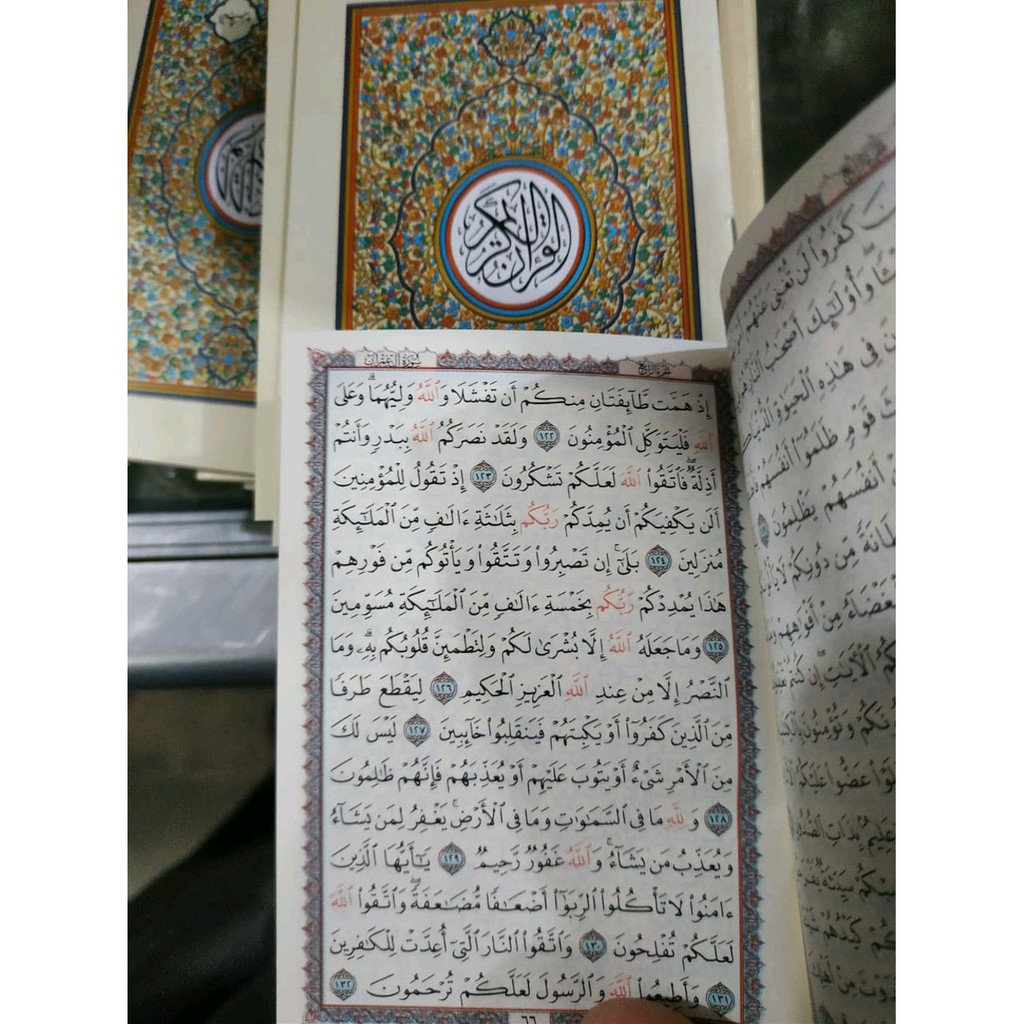 القرآن الكريم
سورة آل عمران
الجزء الرابع
إِذْ هَمَّت طَّآئِفَتَانِ مِنكُمْ أَن تَفْشَلَا وَٱللَّهُ وَلِيُّهُمَا ۗ وَعَلَى
ٱللَّهِ فَلْيَتَوَكَّلِ ٱلْمُؤْمِنُونَ ١٢٢ وَلَقَدْ نَصَرَكُمُ ٱللَّهُ بِبَدْرٍ وَأَنتُمْ
أَذِلَّةٌ ۖ فَٱتَّقُوا۟ ٱللَّهَ لَعَلَّكُمْ تَشْكُرُونَ ١٢٣ إِذْ تَقُولُ لِلْمُؤْمِنِينَ
أَلَن يَكْفِيَكُمْ أَن يُمِدَّكُمْ رَبُّكُم بِثَلَـٰثَةِ ءَالَـٰفٍ مِّنَ ٱلْمَلَـٰٓئِكَةِ
مُنزَلِينَ ١٢٤ بَلَىٰٓ ۚ إِن تَصْبِرُوا۟ وَتَتَّقُوا۟ وَيَأْتُوكُم مِّن فَوْرِهِمْ
هَـٰذَا يُمْدِدْكُمْ رَبُّكُم بِخَمْسَةِ ءَالَـٰفٍ مِّنَ ٱلْمَلَـٰٓئِكَةِ مُسَوِّمِينَ
١٢٥ وَمَا جَعَلَهُ ٱللَّهُ إِلَّا بُشْرَىٰ لَكُمْ وَلِتَطْمَئِنَّ قُلُوبُكُم بِهِۦ ۗ وَمَا
ٱلنَّصْرُ إِلَّا مِنْ عِندِ ٱللَّهِ ٱلْعَزِيزِ ٱلْحَكِيمِ ١٢٦ لِيَقْطَعَ طَرَفًا
مِّنَ ٱلَّذِينَ كَفَرُوٓا۟ أَوْ يَكْبِتَهُمْ فَيَنقَلِبُوا۟ خَآئِبِينَ ١٢٧ لَيْسَ لَكَ
مِنَ ٱلْأَمْرِ شَىْءٌ أَوْ يَتُوبَ عَلَيْهِمْ أَوْ يُعَذِّبَهُمْ فَإِنَّهُمْ ظَـٰلِمُونَ
١٢٨ وَلِلَّهِ مَا فِى ٱلسَّمَـٰوَٰتِ وَمَا فِى ٱلْأَرْضِ ۚ يَغْفِرُ لِمَن يَشَآءُ
وَيُعَذِّبُ مَن يَشَآءُ ۚ وَٱللَّهُ غَفُورٌ رَّحِيمٌ ١٢٩ يَـٰٓأَيُّهَا ٱلَّذِينَ
ءَامَنُوا۟ لَا تَأْكُلُوا۟ ٱلرِّبَوٰٓا۟ أَضْعَـٰفًا مُّضَـٰعَفَةً ۖ وَٱتَّقُوا۟ ٱللَّهَ
لَعَلَّكُمْ تُفْلِحُونَ ١٣٠ وَٱتَّقُوا۟ ٱلنَّارَ ٱلَّتِىٓ أُعِدَّتْ لِلْكَـٰفِرِينَ
١٣١ وَأَطِيعُوا۟ ٱللَّهَ وَٱلرَّسُولَ لَعَلَّكُمْ تُرْحَمُونَ ١٣٢
٦٦
كَفَرُوا۟ لَن تُغْنِىَ عَنْهُمْ
وَأُو۟لَـٰٓئِكَ أَصْحَـٰبُ ٱلنَّارِ
فِى هَـٰذِهِ ٱلْحَيَوٰةِ ٱلدُّنْيَا
قَوْمٍ ظَلَمُوٓا۟ أَنفُسَهُمْ
أَنفُسَهُمْ يَظْلِمُونَ
مِّن دُونِكُمْ لَا
مِنْ أَفْوَٰهِهِمْ
ٱلْـَٔايَـٰتِ ۖ إِن كُنتُمْ
وَتُؤْمِنُونَ
عَضُّوا۟ عَلَيْكُمُ
عَلِيمٌۢ بِذَاتِ
سَيِّئَةٌ
كَيْدُهُمْ
مِنْ أَهْلِكَ